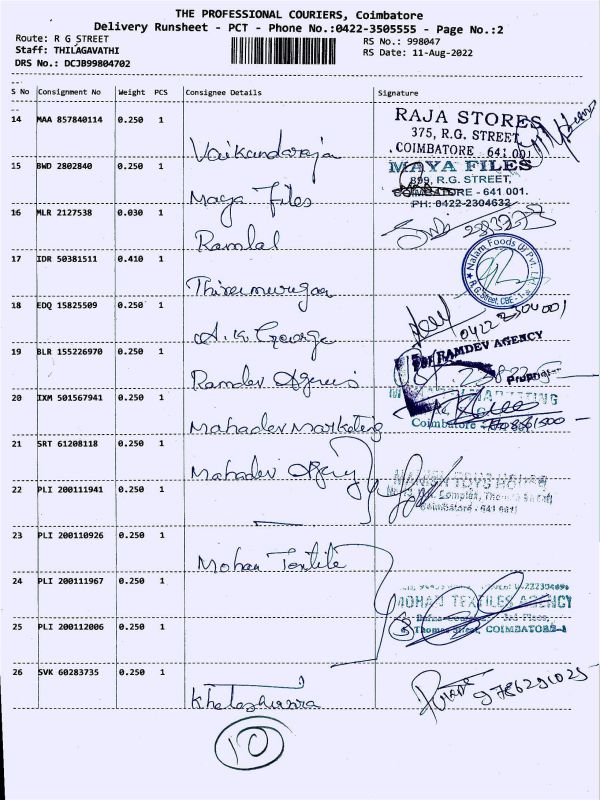 THE PROFESSIONAL COURIERS, Coimbatore
Delivery Runsheet - PCT - Phone No.:0422-3505555 - Page No.:2
Route: R G STREET
Staff: THILAGAVATHI
DRS No.: DCJB99804702
RS No.: 998047
RS Date: 11-Aug-2022
S No Consignment No Weight PCS Consignee Details Signature
14 MAA 857840114 0.250 1 Vaikandaraja
RAJA STORES
375, R.G. STREET,
COIMBATORE - 641 001.
15 BWD 2802840 0.250 1 Maya Files
MAYA FILES
899, R.G. STREET,
COIMBATORE - 641 001.
PH: 0422-2304632
16 MLR 2127538 0.030 1 Ramlal
17 IDR 50381511 0.410 1 Thirumurugan
Nalam Foods (I) Pvt. Ltd.
R.G. Street, CBE - 1
18 EDQ 15825509 0.250 1 A.K. George
0422 2300001
19 BLR 155226970 0.250 1 Ramdev Agencies
For RAMDEV AGENCY
20 IXM 501567941 0.250 1 Mahadev Marketing
Coimbatore
21 SRT 61208118 0.250 1 Mahadev Agency
22 PLI 200111941 0.250 1
Complex, Thomas Street
Coimbatore - 641 001
23 PLI 200110926 0.250 1 Mohan Textile
24 PLI 200111967 0.250 1
MOHAN TEXTILES AGENCY
25 PLI 200112006 0.250 1
Thomas Street, COIMBATORE-1
26 SVK 60283735 0.250 1
9786291025
10